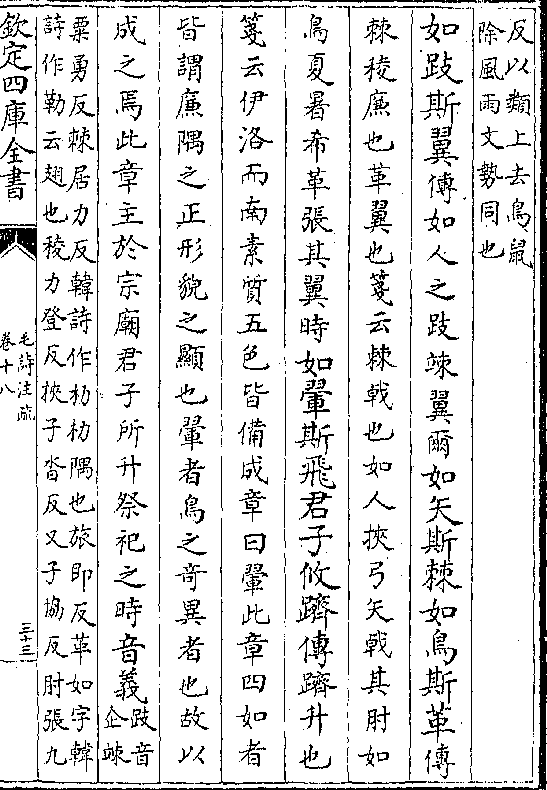 反以類上去鳥鼠
除風雨文勢同也
如跂斯翼傳如人之跂竦翼爾如矢斯棘如鳥斯革傳
棘稜廉也革翼也箋云棘戟也如人挾弓矢戟其肘如
鳥夏暑希革張其翼時如翬斯飛君子攸躋傳躋升也
箋云伊洛而南素質五色皆備成章曰翬此章四如者
皆謂廉隅之正形貌之顯也翬者鳥之奇異者也故以
成之焉此章主於宗廟君子所升祭祀之時音義
跂音
企竦
粟勇反棘居力反韓詩作朸朸隅也旅即反革如字韓
詩作勒云翅也稜力登反挾子沓反又子協反肘張九
欽定四庫全書
毛詩注疏
卷十八
三十三